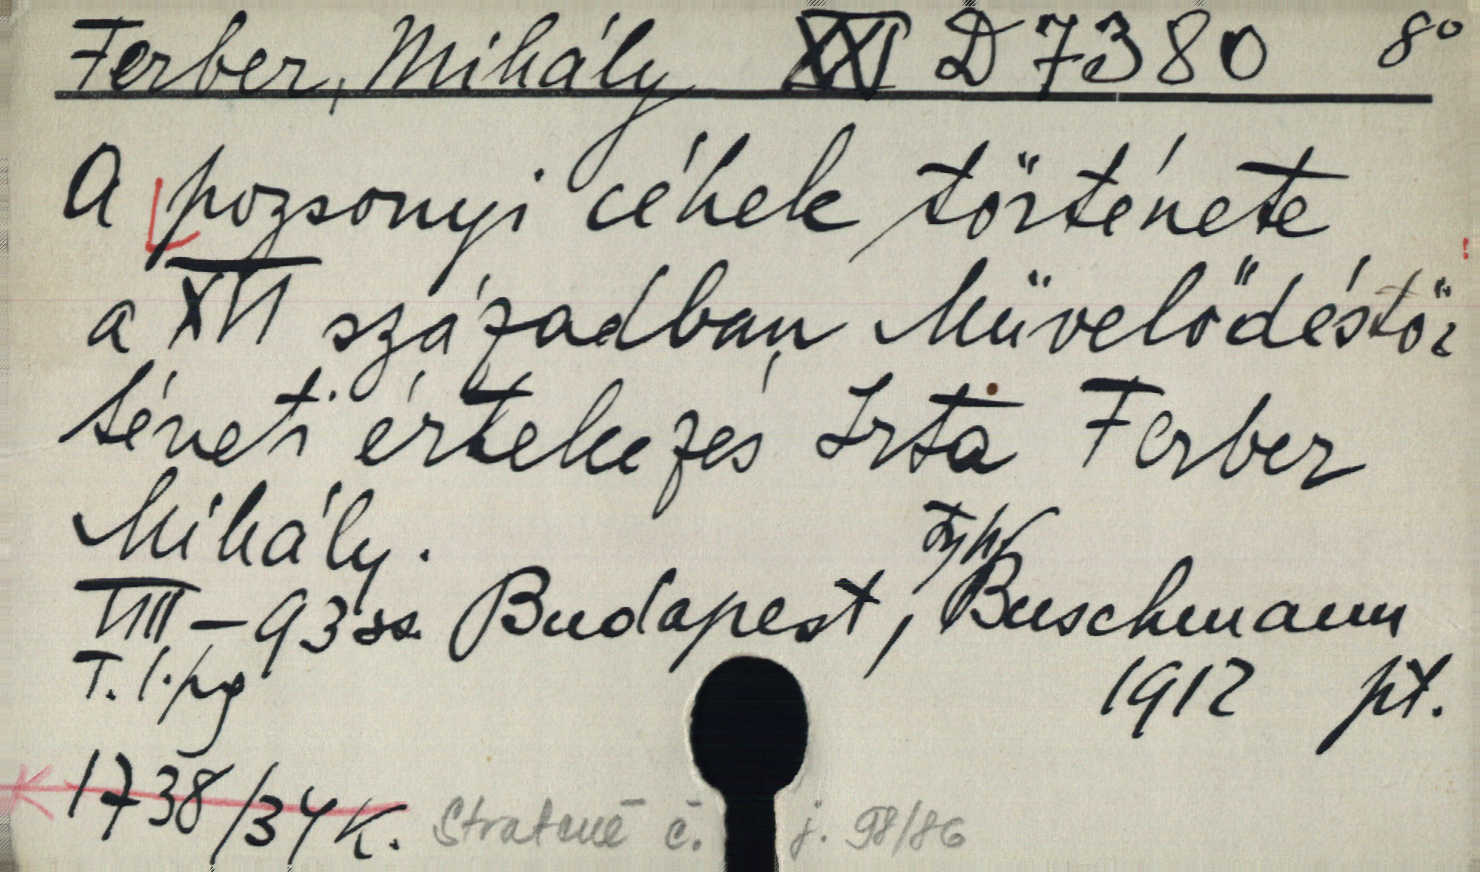 Ferber, Mihály XXI D 7380 8°
A pozsonyi céhek története
a XVI században, Müvelődéstör
téneti értekezés Irta Ferber
Mihály.
VIII - 93 ss. Budapest, Typ. Buschmann
T. l. pg 1912 pt.
1738/34 K. Stratené č. j. 98/86